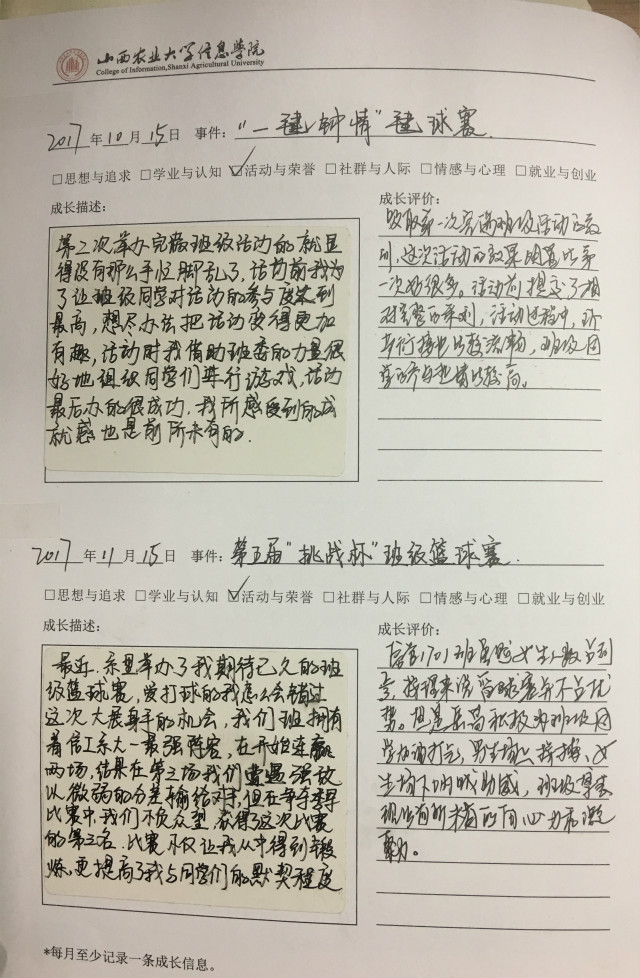 山西农业大学信息学院
College of Information,Shanxi Agricultural University
2017 年 10 月 15 日 事件: "一毽钟情"毽球赛.
□思想与追求 □学业与认知 ☑活动与荣誉 □社群与人际 □情感与心理 □就业与创业
成长描述:
第二次举办完整班级活动的就显
得没有那么手忙脚乱了, 活动前我为
了让班级同学对活动的参与度达到
最高, 想尽办法把活动变得更加
有趣, 活动时我借助班委的力量很
好地组织同学们进行游戏, 活动
最后办的很成功. 我所感受到的成
就感也是前所未有的.
成长评价:
吸取第一次实施班级活动的教
训, 这次活动的效果明显比第
一次好很多。活动前提交了相
对完整的策划, 活动过程中, 环
节衔接也比较流畅, 班级同
学的参与热情比较高。
2017 年 11 月 15 日 事件: 第五届"挑战杯"班级篮球赛.
□思想与追求 □学业与认知 ☑活动与荣誉 □社群与人际 □情感与心理 □就业与创业
成长描述:
最近, 系里举办了我期待已久的班
级篮球赛, 爱打球的我怎么会错过
这次大展身手的机会, 我们班拥有
着信工系大一最强阵容, 在开始连赢
两场, 结果在第三场我们遭遇强敌
以微弱的分差输给对手, 但在争夺季军
比赛中, 我们不负众望, 获得了这次比赛
的第三名. 比赛不仅让我从中得到锻
炼, 更提高了我与同学们的默契程度
成长评价:
信管1701班虽然女生人数占到
多, 按理来说篮球赛并不占优
势。但是岳高积极为班级同
学加油打气, 男生场上拼搏, 女
生场下呐喊助威, 班级
现出有所未有的向心力和凝
聚力。
*每月至少记录一条成长信息。